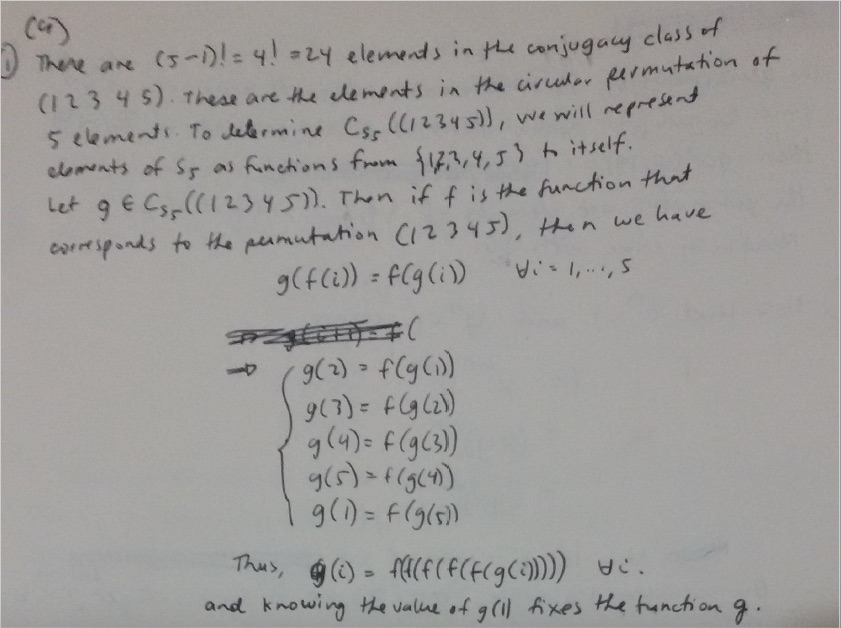 (a)
i) There are (5-1)! = 4! = 24 elements in the conjugacy class of
(1 2 3 4 5). These are the elements in the circular permutation of
5 elements. To determine C_{S_5}((12345)), we will represent
elements of S_5 as functions from {1,2,3,4,5} to itself.
Let g ∈ C_{S_5}((12345)). Then if f is the function that
corresponds to the permutation (12345), then we have
g(f(i)) = f(g(i)) ∀i = 1,...,5
⇒ g(2) = f(g(1))
g(3) = f(g(2))
g(4) = f(g(3))
g(5) = f(g(4))
g(1) = f(g(5))
Thus, g(i) = f(f(f(f(f(g(i)))))) ∀i.
and knowing the value of g(1) fixes the function g.